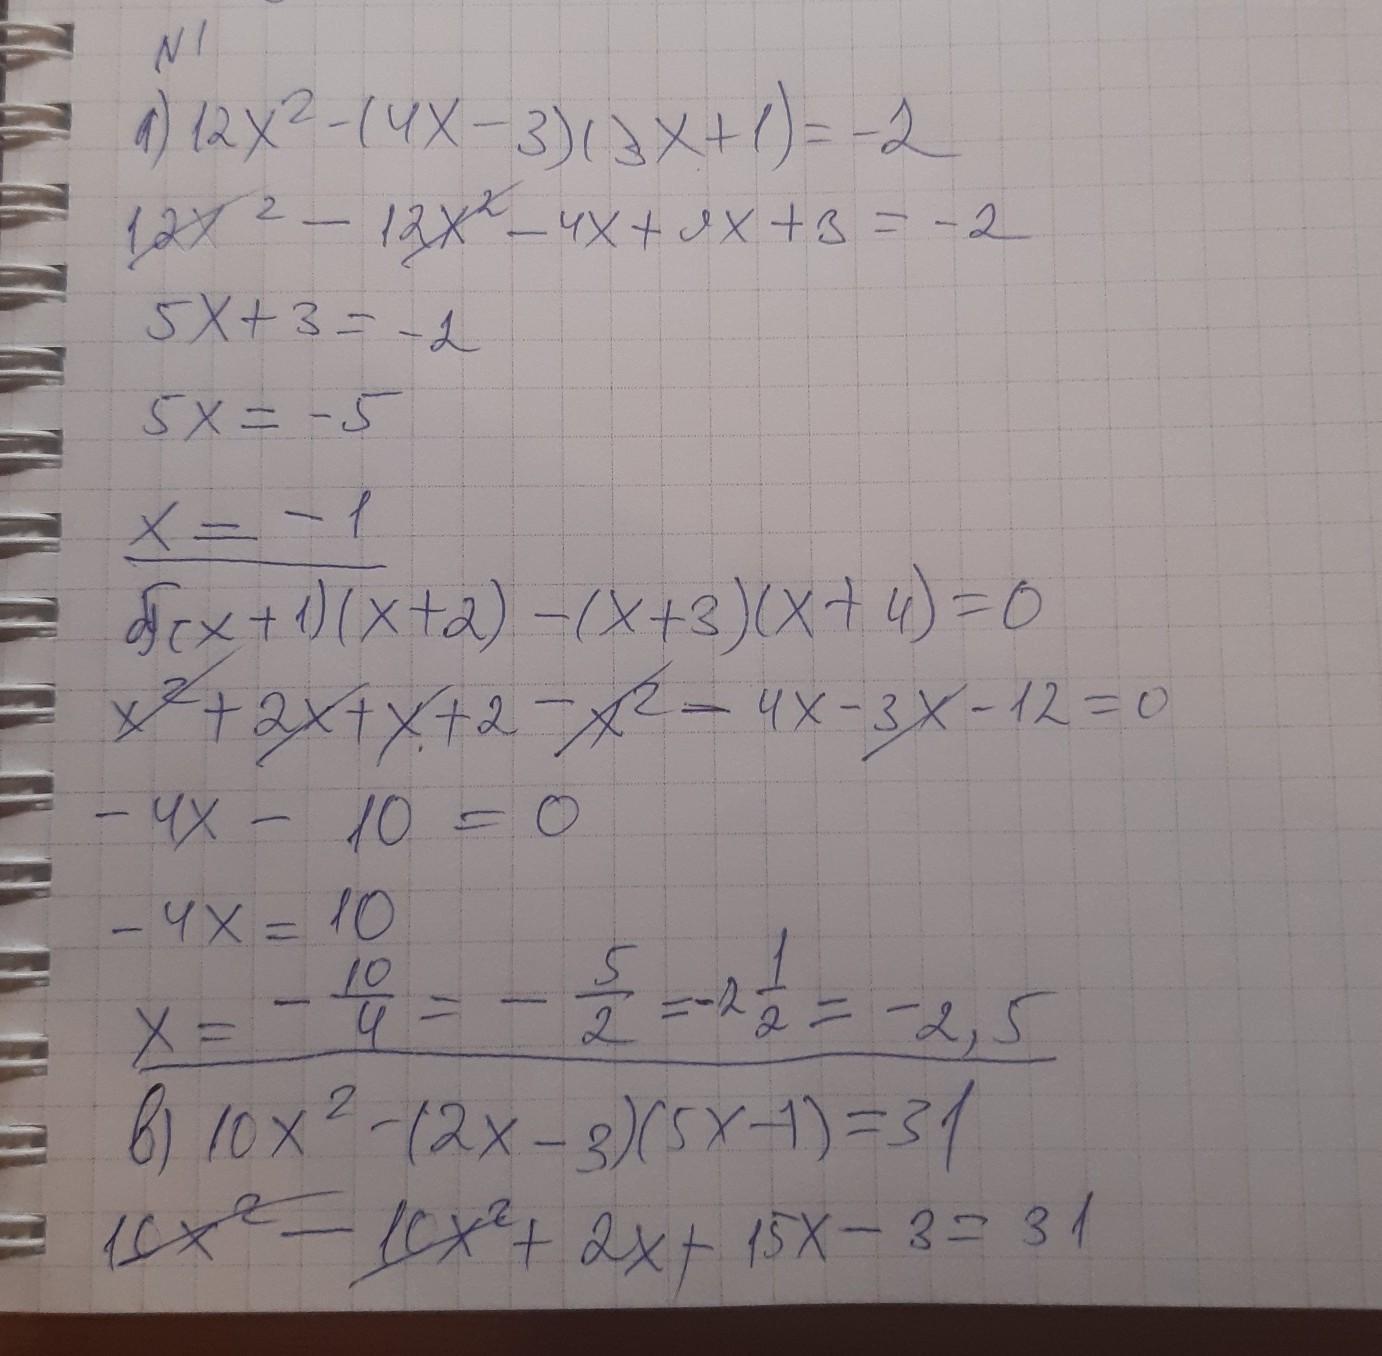 N1
1) 12x² - (4x - 3)(3x + 1) = -2
12x² - 12x² - 4x + 9x + 3 = -2
5x + 3 = -2
5x = -5
x = -1
б) (x + 1)(x + 2) - (x + 3)(x + 4) = 0
x² + 2x + x + 2 - x² - 4x - 3x - 12 = 0
-4x - 10 = 0
-4x = 10
x = -10/4 = -5/2 = -2 1/2 = -2,5
в) 10x² - (2x - 3)(5x - 1) = 31
10x² - 10x² + 2x + 15x - 3 = 31